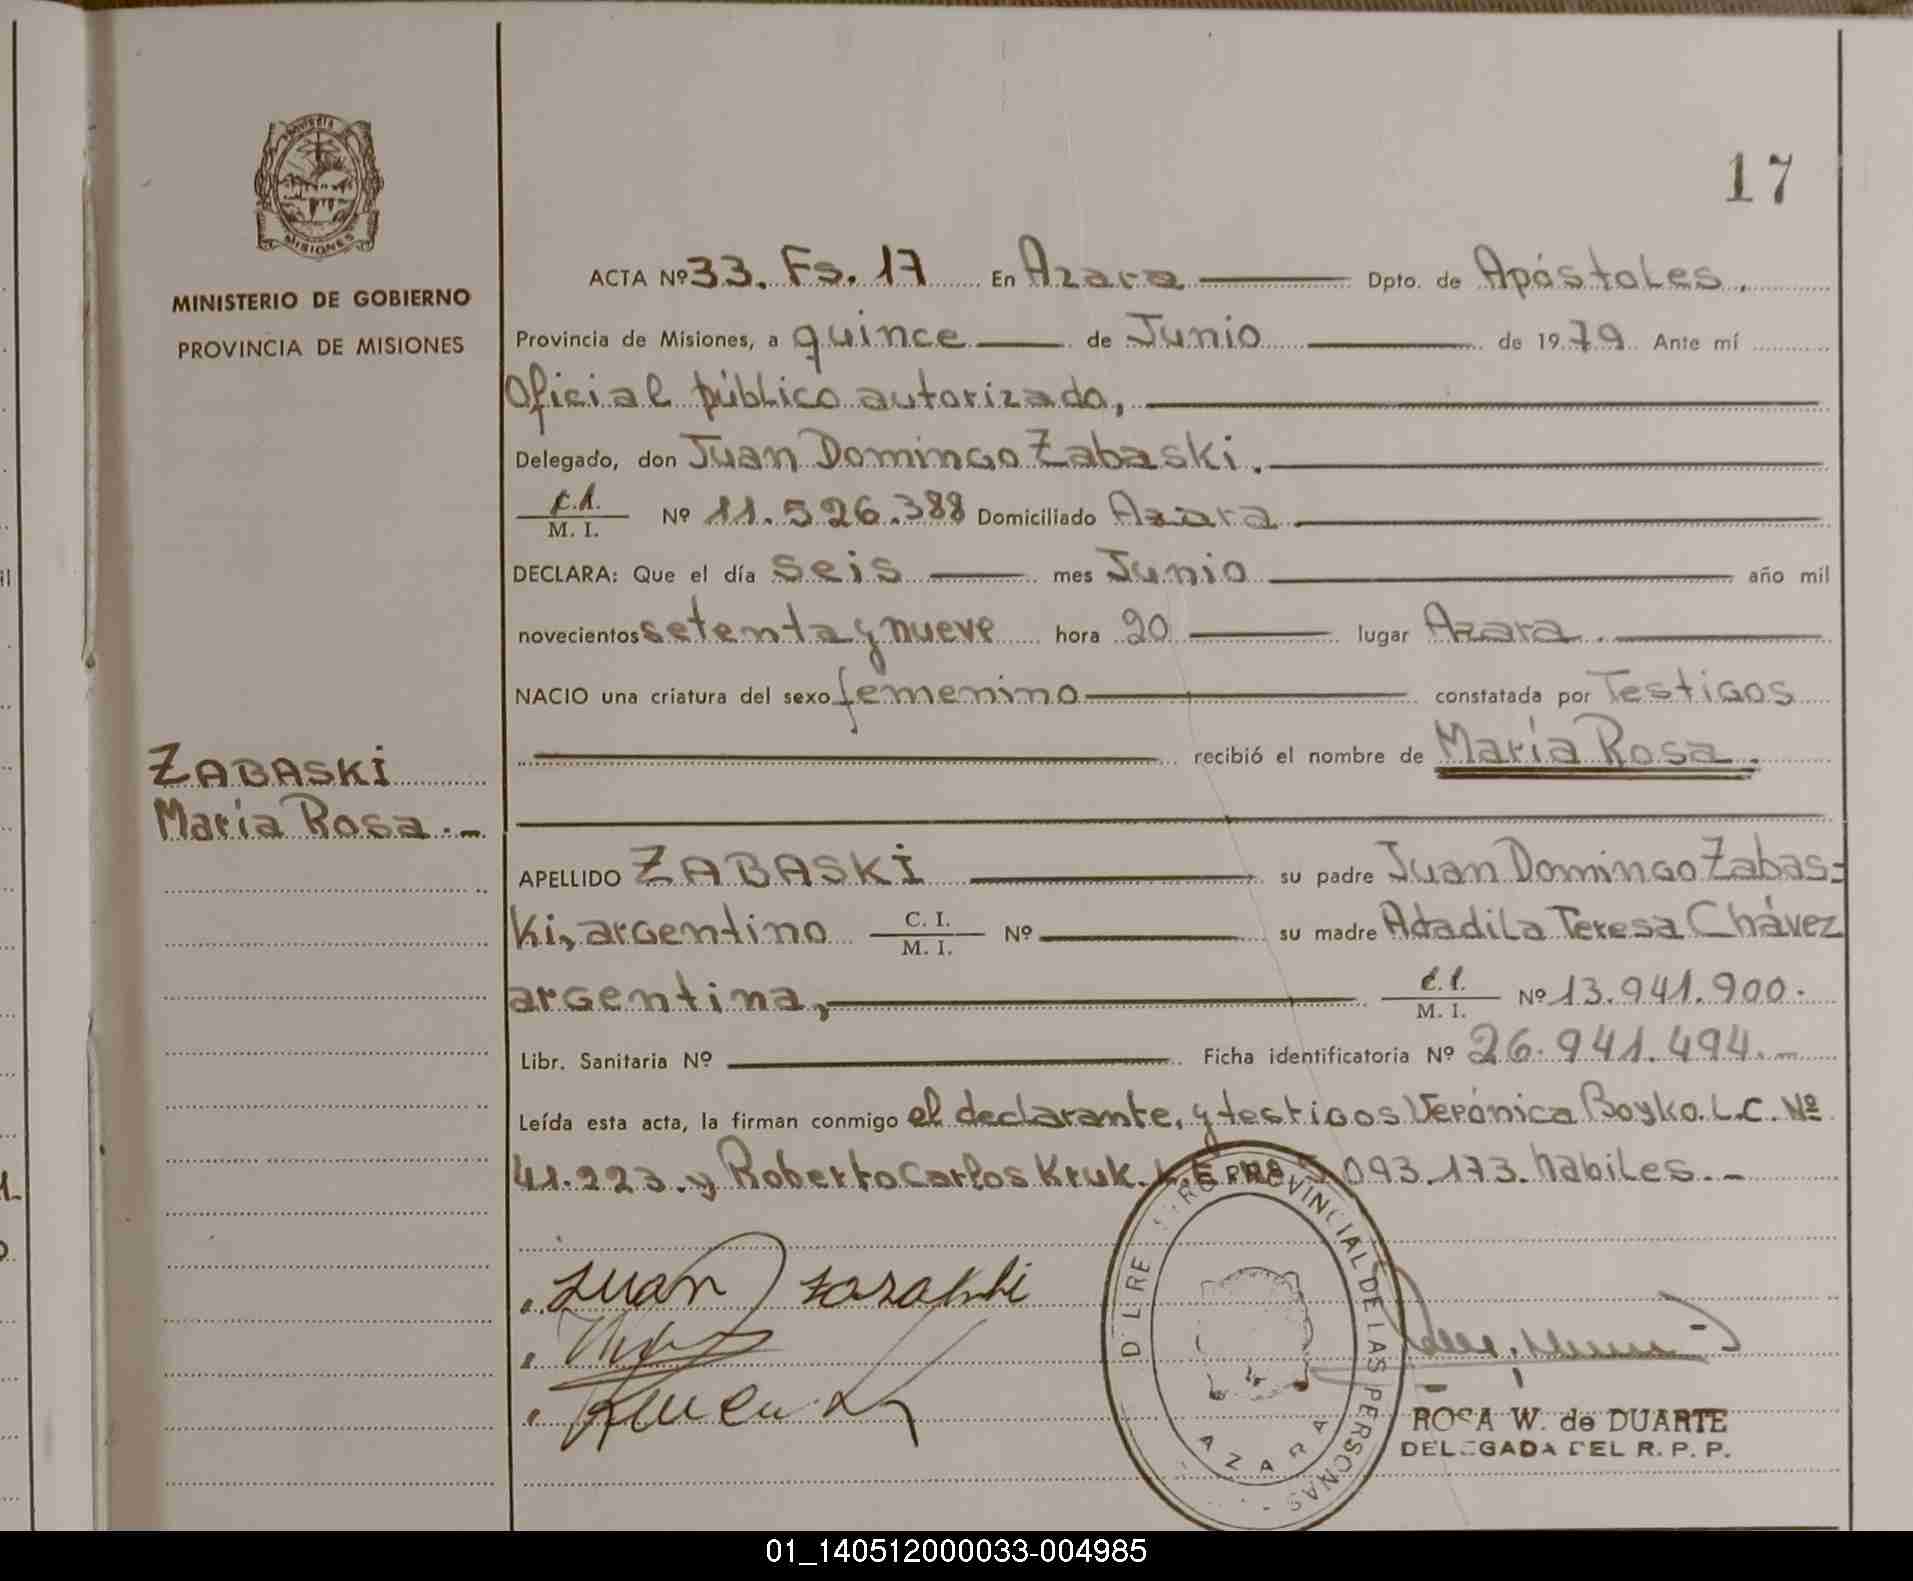 17
PROVINCIA DE
MISIONES
MINISTERIO DE GOBIERNO
PROVINCIA DE MISIONES
ZABASKI
María Rosa.-
ACTA Nº 33. Fs. 17 En Azara Dpto. de Apóstoles.
Provincia de Misiones, a quince de Junio de 1979. Ante mí
Oficial público autorizado,
Delegado, don Juan Domingo Zabaski.
C.I.
M. I. Nº 11.526.388 Domiciliado Azara
DECLARA: Que el día seis mes Junio año mil
novecientos setenta y nueve hora 20 lugar Azara.
NACIO una criatura del sexo femenino constatada por Testigos
recibió el nombre de María Rosa.
APELLIDO ZABASKI su padre Juan Domingo Zabas-
ki, argentino C. I. Nº su madre Adadila Teresa Chávez
M. I.
argentina, C.I. Nº 13.941.900.
M. I.
Libr. Sanitaria Nº Ficha identificatoria Nº 26.941.494.-
Leída esta acta, la firman conmigo el declarante, y testigos Verónica Boyko. L.C. Nº
41.223. y Roberto Carlos Kruk. 093.173. habiles.-
Juan
PROVINCIAL DE LAS PERSONAS
AZARA
ROSA W. de DUARTE
DELEGADA DEL R. P. P.
01_140512000033-004985